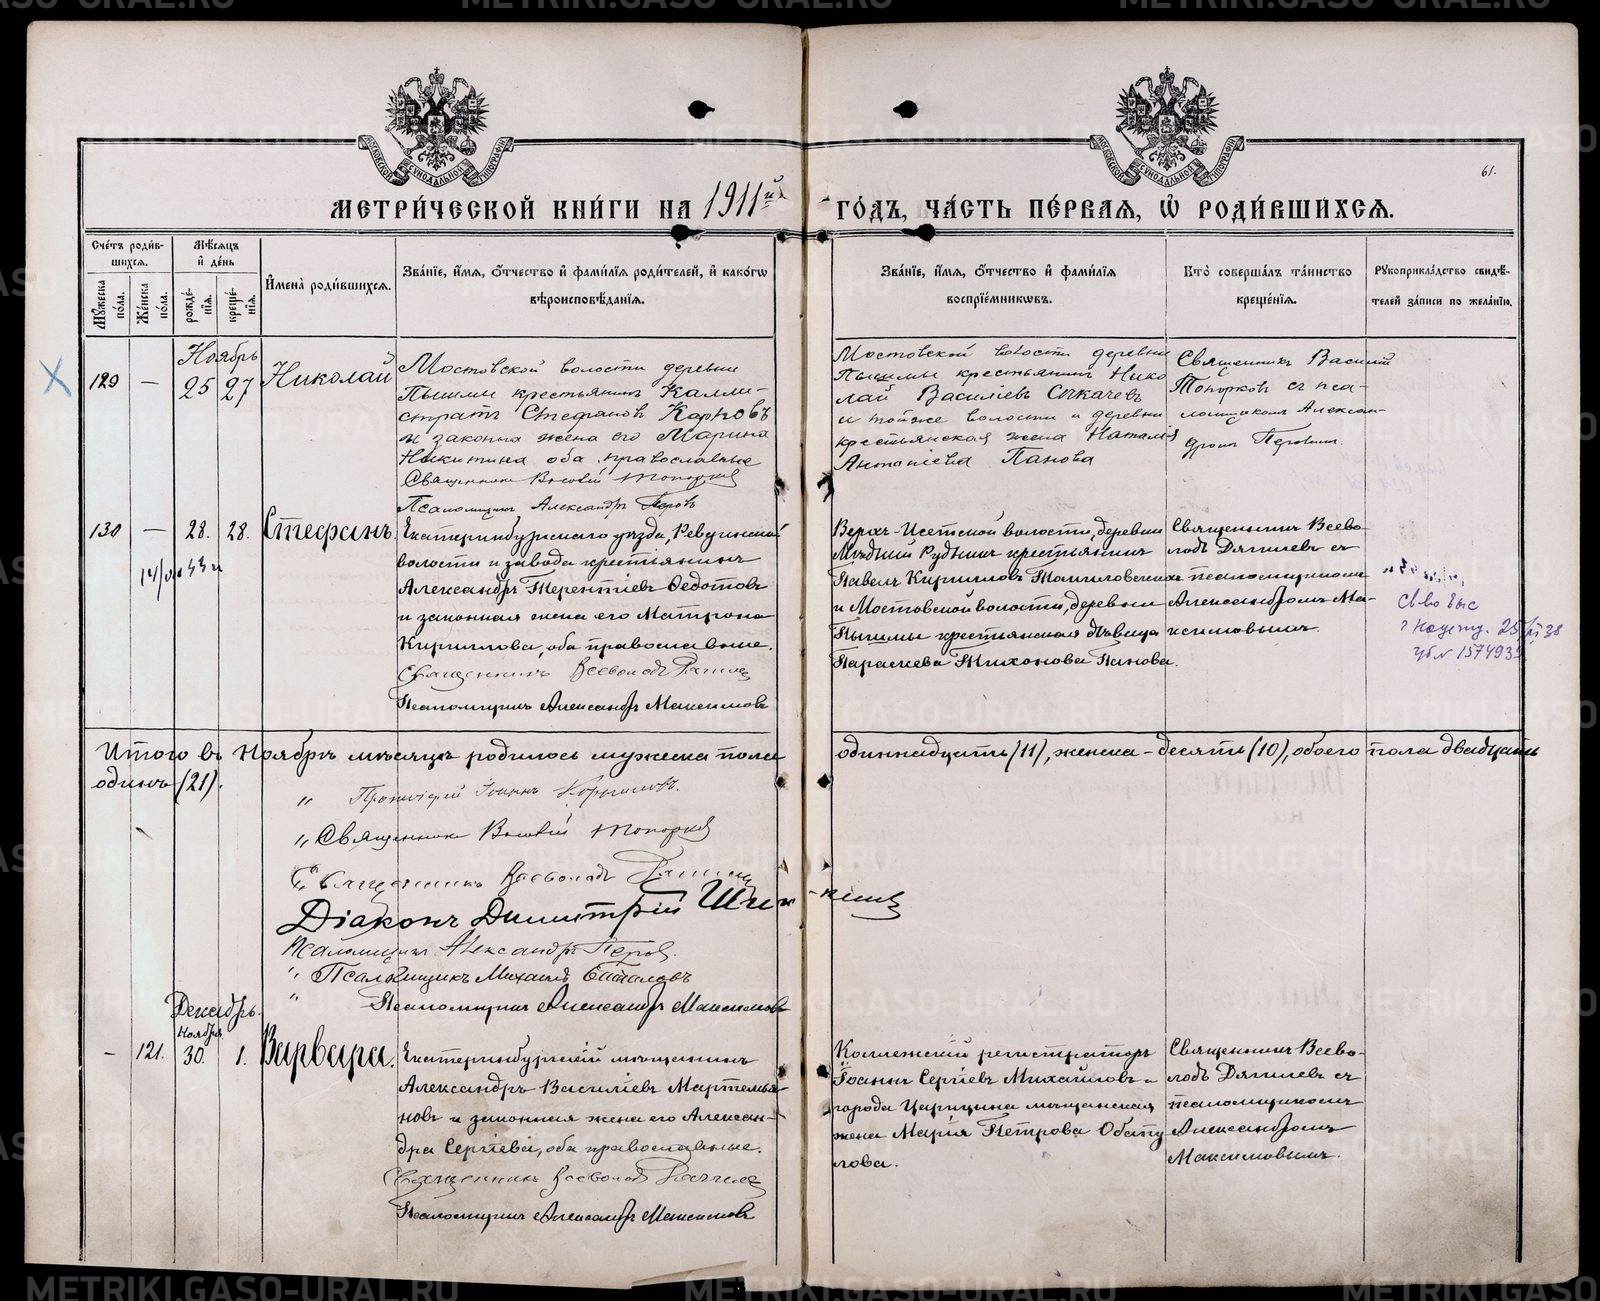 METRIKI.GASO-URAL.RU
61.
МЕТРИЧЕСКОЙ КНИГИ НА 1911й ГОДЪ, ЧАСТЬ ПЕРВАЯ, Ѡ РОДИВШИХСЯ.
Счетъ родив-
шихся.
Мужеска пола.
Женска пола.
Мѣсяцъ и день
рожденія.
крещенія.
Имена родившихся.
Званіе, имя, отчество и фамилія родителей, и какогѡ
вѣроисповѣданія.
Званіе, имя, отчество и фамилія
воспріемникѡвъ.
Кто совершалъ таинство
крещенія.
Рукоприкладство свидѣ-
телей записи по желанію.
Ноябрь
129 — 25 27 Николай
Мостовской волости деревни
Пышмы крестьянинъ Калли-
стратъ Стефановъ Карповъ
и законна жена его Марина
Никитина оба православные
Священникъ Василій Топорковъ
Псаломщикъ Александръ Перовъ
Мостовской волости деревни
Пышмы крестьянинъ Нико
лай Василіевъ Сыкачевъ
и тойже волости и деревни
крестьянская жена Наталія
Панова
Священникъ Василій
Топорковъ съ пса-
ломщикомъ Алексан-
дромъ Перовымъ.
130 — 28. 28. Стефанъ.
Екатеринбургскаго уѣзда, Ревдинской
волости и завода крестьянинъ
Александръ Терентіевъ Федотовъ
и законная жена его Матрона
Кириллова, оба православные.
Священникъ Всеволодъ
Псаломщикъ Александръ Максимовъ
Верхъ-Исетской волости, деревни
Мѣдный Рудникъ крестьянинъ
Павелъ Кирилловъ
и Мостовской волости, деревни
Пышмы крестьянская дѣвица
Параскева Тихонова Панова.
Священникъ Всево-
лодъ съ
псаломщикомъ
Александромъ Ма-
ксимовымъ.
Итого въ Ноябрѣ мѣсяцѣ родилось мужеска пола одиннадцать (11), женска - десять (10), обоего пола двадцать
одинъ (21).
" Протоіерей Іоаннъ
" Священникъ Василій Топорковъ
Священникъ Всеволодъ
Діаконъ Димитрій
Псаломщикъ Александръ Перовъ
" Псаломщикъ Михаилъ
" Псаломщикъ Александръ Максимовъ
Декабрь.
Ноября
— 121. 30. 1. Варвара.
Екатеринбургскій мѣщанинъ
Александръ Василіевъ Мартемья-
новъ и законная жена его Алексан-
дра Сергіева, оба православные.
Священникъ Всеволодъ
Псаломщикъ Александръ Максимовъ
Коллежскій регистраторъ
Іоаннъ Сергіевъ Михайловъ и
города Царицына мѣщанская
жена Марія Петрова Обату
лова.
Священникъ Всево-
лодъ съ
псаломщикомъ
Александромъ
Максимовымъ.